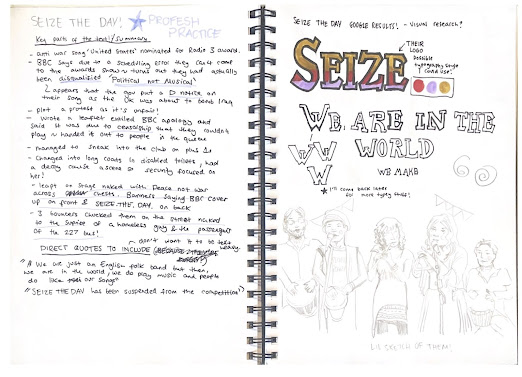 SEIZE THE DAY! ★ PROFESH
PRACTICE
Key parts of the text/summary
- anti war song 'United States' nominated for Radio 3 award.
- BBC says due to a scheduling error they can't come
to the awards show ~ turns out they had actually
been disqualified 'Political not Musical'
appears that the gov put a D notice on
their song as the UK was about to bomb Iraq
- plot a protest as it's unfair!
- wrote a leaflet entitled BBC apology and
said it was due to censorship that they couldn't
play ~ handed it out to people in the queue
- managed to sneak into the club on plus 1s
- changed into long coats in disabled toilets, had
a decoy cause a scene so security focused on
her!
- leapt on stage naked with Peace not war
across chests. Banners saying BBC cover
up on front & SEIZE THE DAY on back
- 3 bouncers chucked them on the street naked
to the surprise of a homeless guy & the passengers
of the 227 bus!
- don't want it to be text
heavy
DIRECT QUOTES TO INCLUDE
"We are just an English folk band but then,
we are in the world, we do play music and people
do like our songs"
"SEIZE THE DAY has been suspended from the competition"
SEIZE THE DAY GOOGLE RESULTS! - VISUAL RESEARCH?
SEIZE
THEIR
LOGO
possible
typography style
I could use!
WE ARE IN THE
WORLD
WE MAKE
I'll come back later
for more typey stuff!
LIL SKETCH OF THEM!